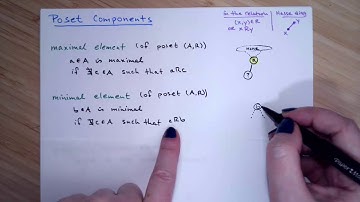 Poset Components
in the relation
(x,y)∈R
or xRy
Hasse diag
y
x
maximal element (of poset (A,R))
a∈A is maximal
if ∄c∈A such that aRc
minimal element (of poset (A,R))
b∈A is minimal
if ∄c∈A such that cRb